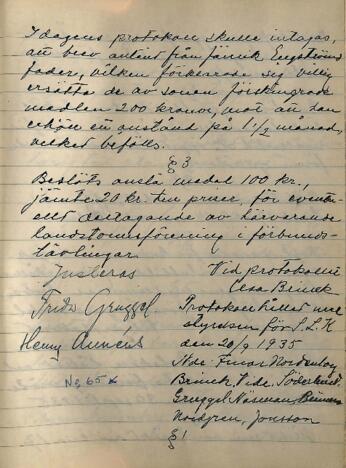 I dagens protokoll skulle intagas,
att brev anlänt från fänrik Engströms
fader, vilken förklarade sig villig
ersätta de av sonen förskingrade
medlen 200 kronor, mot att han
erhöll en anstånd på 1 1/2 månad,
vilket bifölls.
§ 3
Beslöts anslå medel 100 kr.,
jämte 20 kr. till priser, för eventu-
ellt deltagande av härvarande
landstormsförening i förbunds-
tävlingar.
Justeras
Vid protokollet
Brinck
Gruggel
Protokoll hållet med
Henny
styrelsen för S. L. K
den 20/9 1935
Nº 65
Nde: Einar Nordenlöv
Brinck, Vide, Söderlund,
Gruggel, Näsman,
Nordgren, Jonsson
§ 1